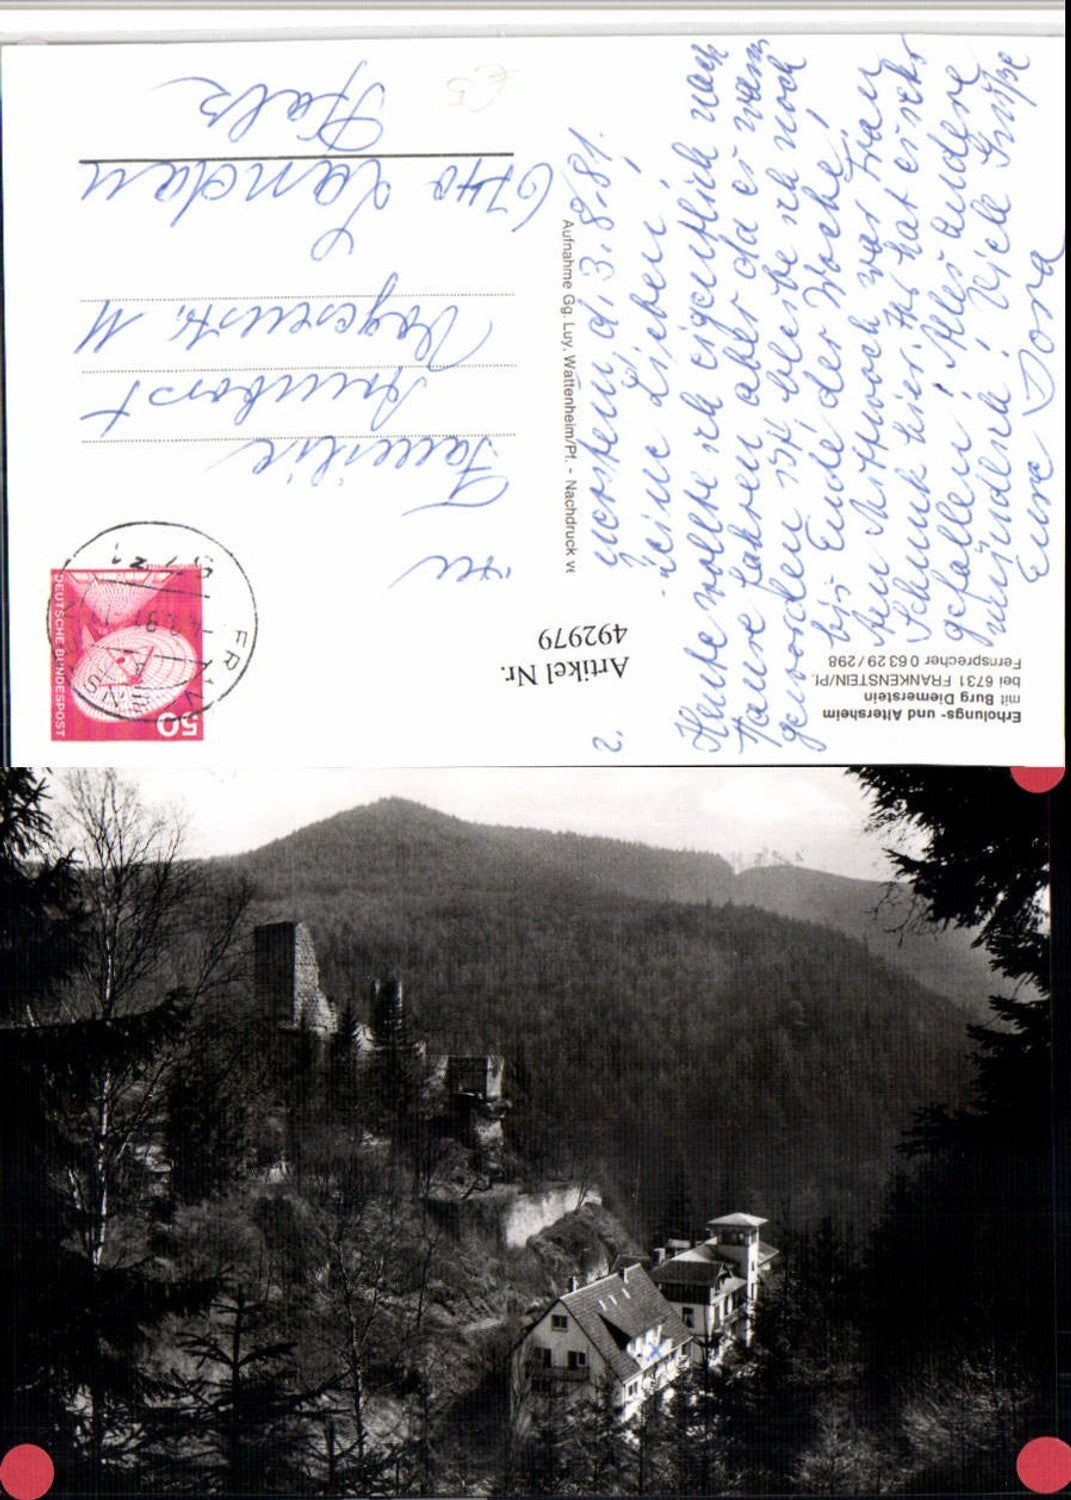 Erholungs- und Altersheim
mit Burg Diemerstein
bei 6731 FRANKENSTEIN/Pf.
Fernsprecher 0 63 29 / 298
z.
d. 3.8.81.
Meine Lieben!
Heute wollte ich eigentlich nach
Hause fahren aber da es warm
geworden ist, bleibe ich noch
bis Ende der Woche!
Am Mittwoch war Frau
Schunk hier. Ihr hat es sehr
gefallen! Alles andere
mündlich! Viele Grüße
Eure Dora
Aufnahme Gg. Luy, Wattenheim/Pf. - Nachdruck ve
Artikel Nr.
492979
50
DEUTSCHE BUNDESPOST
An
Familie
6740 Landau
Pfalz